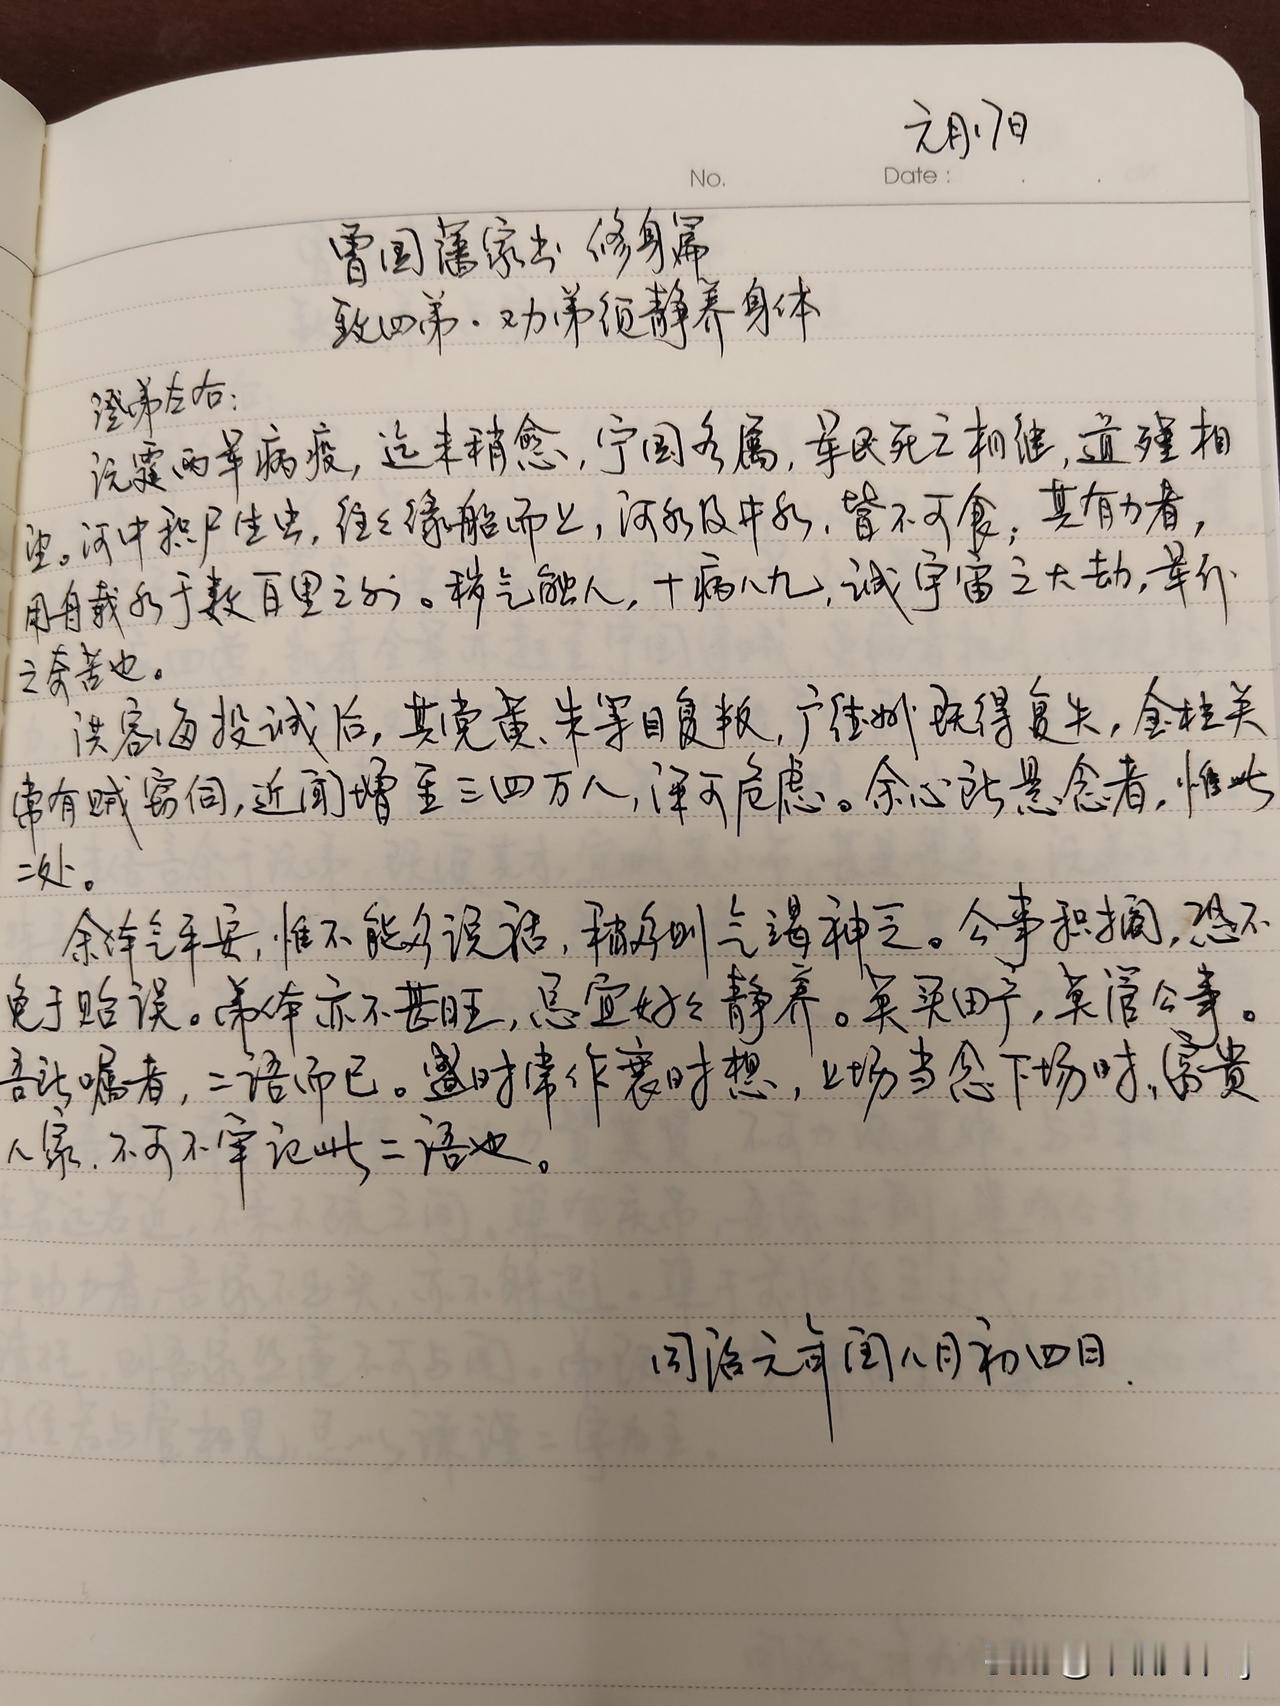 元月17日
No.
Date : . .
曾国藩家书 修身篇
致四弟·劝弟须静养身体
澄弟左右:
沅霆两军病疫，迄未稍愈，宁国各属，军民死亡相继，道殣相
望。河中积尸生虫，往往缘船而上，河水及井水，皆不可食；其有力者，
用舟载水于数百里之外。秽气触人，十病八九，诚宇宙之大劫，军行
之奇苦也。
洪容海投诚后，其党黄、朱等目复叛，广德州既得复失，金柱关
常有贼窥伺，近闻增至三四万人，深可危虑。余心所悬念者，惟此
二处。
余体气平安，惟不能多说话，稍多则气竭神乏。公事积搁，恐不
免于贻误。弟体亦不甚旺，总宜好好静养。莫买田产，莫管公事。
吾所嘱者，二语而已。盛时常作衰时想，上场当念下场时，富贵
人家，不可不牢记此二语也。
同治元年闰八月初四日.